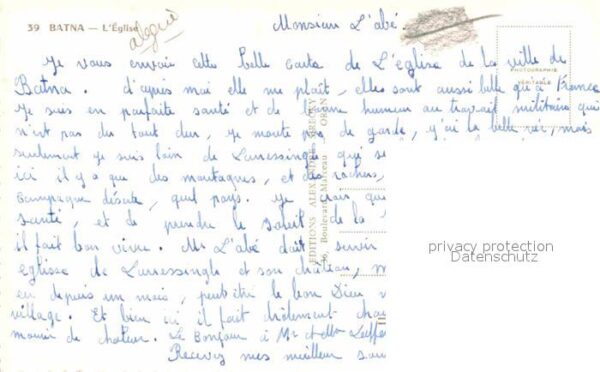 39 BATNA — L'Église
algérie
Monsieur L'abé.
Je vous envoie cette belle carte de L'église de la ville de
Batna. d'après moi elle me plaît, elles sont aussi belle qu'à France
Je suis en parfaite santé et de bonne humeur au travail militaire qui
n'est pas du tout dur, je monte pas de garde, j'ai la belle vie, mais
seulement je suis loin de Larressingle qui se
ici il y a que des montagnes, et des rochers,
campagne déserte, quel pays. Je crois que
santé, et de prendre le soleil de la
il fait bon vivre. Mr L'abé doit servir
eglise de Larressingle et son château,
en depuis un mois, peut être le bon Dieu
village. Et bien ici il fait drôlement chau
mourir de chaleur. Le Bonjour à Mr et Mme
Recevez mes meilleur sou
PHOTOGRAPHIE
VÉRITABLE
EDITIONS ALEXANDRE GREGORY
Boulevard Marceau ORAN
privacy protection
Datenschutz